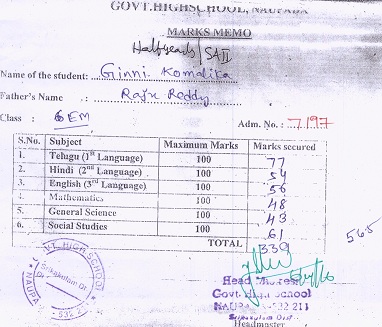 GOVT.HIGHSCHOOL, NAUPADA
MARKS MEMO
Halfyearly/SAII
Name of the student: Ginni. Komalika
Father's Name : Raju Reddy
Class : 6 EM Adm. No. : 7197
S.No. Subject Maximum Marks Marks secured
1. Telugu (1st Language) 100 77
2. Hindi (2nd Language) 100 54
3. English (3rd Language) 100 56
4. Mathematics 100 48
5. General Science 100 43
6. Social Studies 100 61
TOTAL 339
565
VT. HIGH SCHOOL
Srikakulam Dt.
532 2
Govt. High School
NAUPADA-532 211
Srikakulam Dist
Headmaster